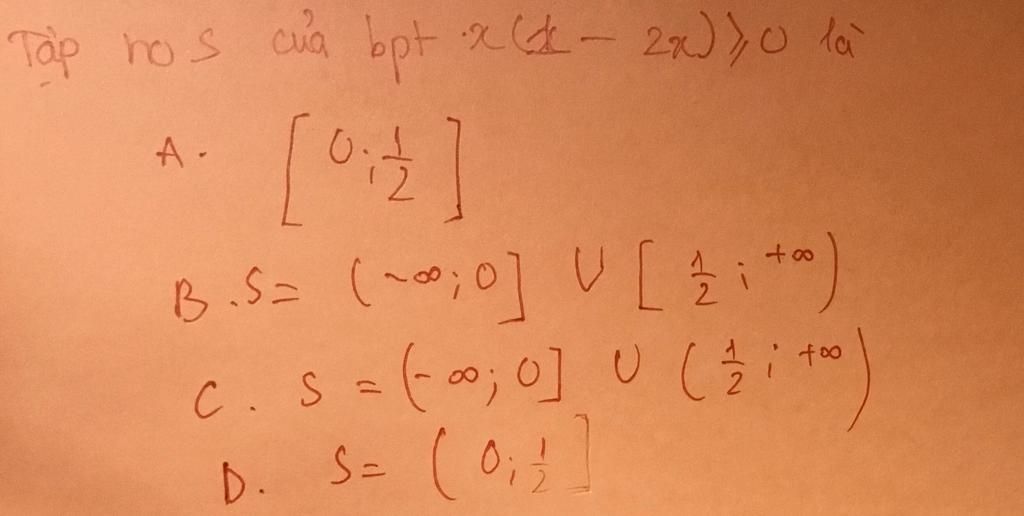 Tập no S của bpt x( - 2x) ≥ 0 là
A. [0; 1/2]
B. S = (-∞; 0] ∪ [1/2; +∞)
C. S = (-∞; 0] ∪ (1/2; +∞)
D. S = (0; 1/2]